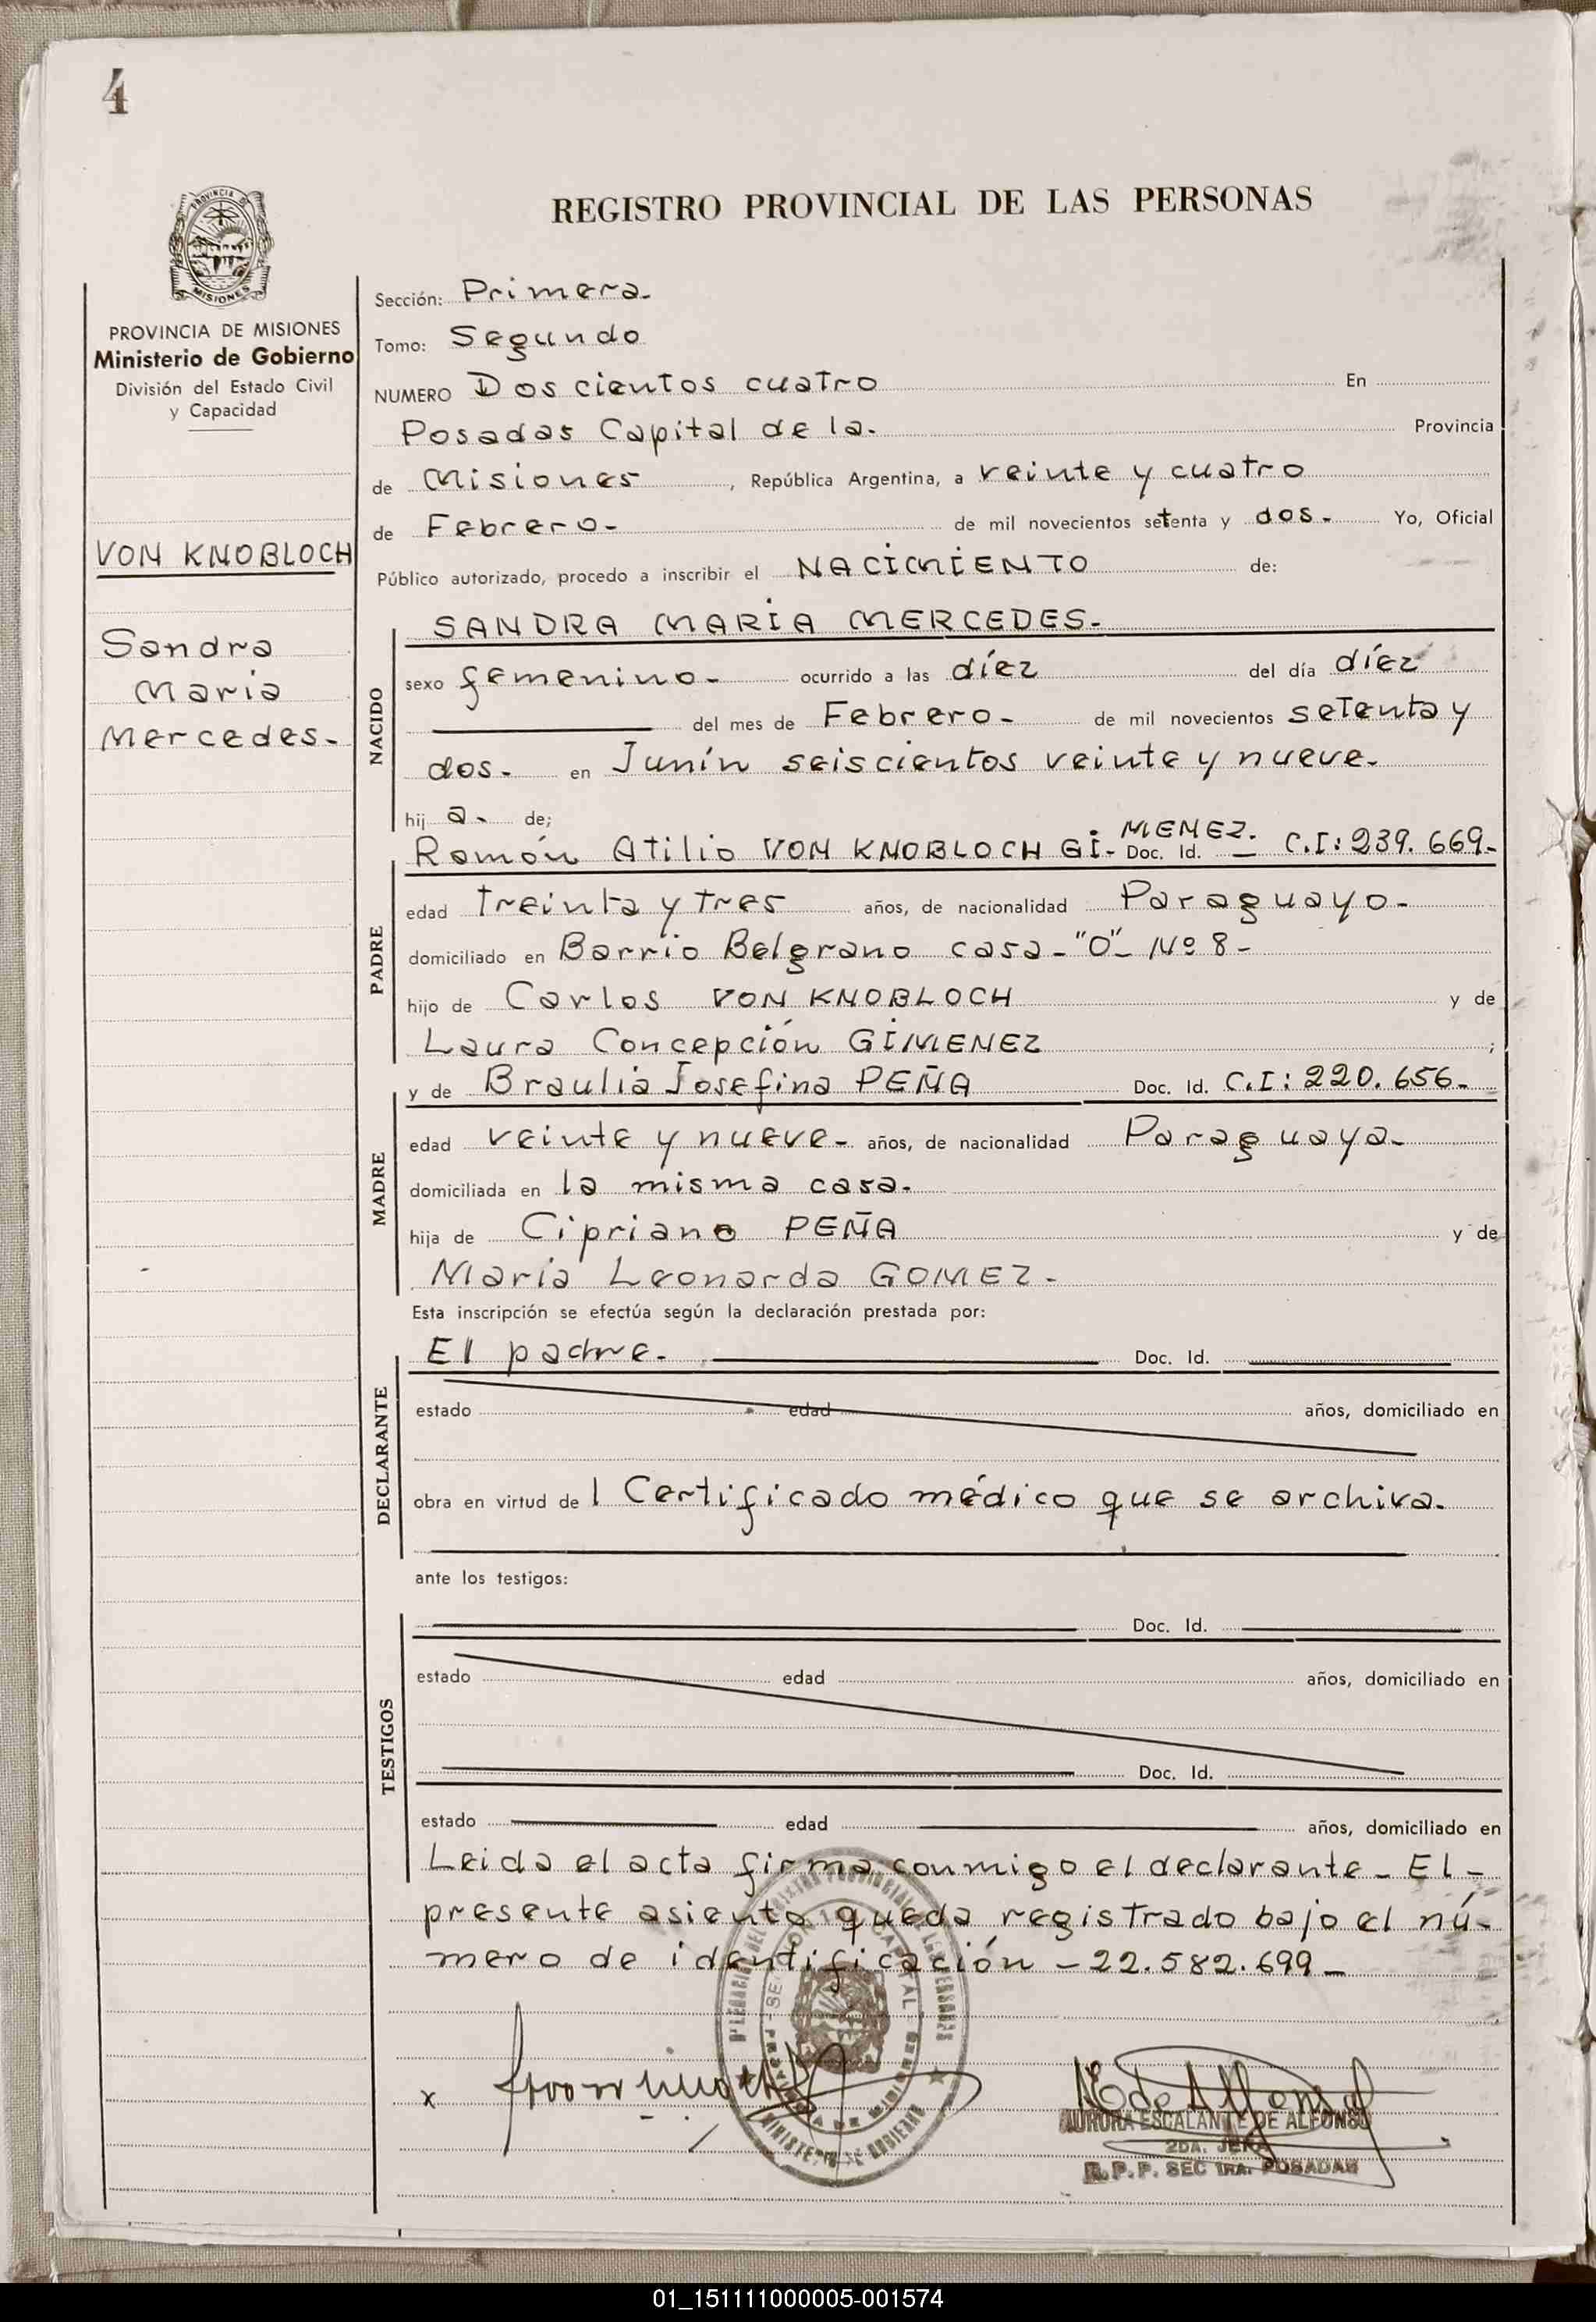 4
PROVINCIA DE
MISIONES
REGISTRO PROVINCIAL DE LAS PERSONAS
PROVINCIA DE MISIONES
Ministerio de Gobierno
División del Estado Civil
y Capacidad
VON KNOBLOCH
Sandra
Maria
Mercedes.-
Sección: Primera.
Tomo: Segundo
NUMERO Dos cientos cuatro En
Posadas Capital de la. Provincia
de Misiones, República Argentina, a veinte y cuatro
de Febrero.- de mil novecientos setenta y dos.- Yo, Oficial
Público autorizado, procedo a inscribir el NACIMIENTO de:
NACIDO
SANDRA MARIA MERCEDES.-
sexo femenino.- ocurrido a las díez del día díez
del mes de Febrero.- de mil novecientos setenta y
dos.- en Junín seiscientos veinte y nueve.
hij a. de;
PADRE
Ramón Atilio VON KNOBLOCH GI-MENEZ. Doc. Id. — C.I: 239.669.-
edad treinta y tres años, de nacionalidad Paraguayo.-
domiciliado en Barrio Belgrano casa-"O"- Nº 8-
hijo de Carlos VON KNOBLOCH y de
Laura Concepción GIMENEZ ;
MADRE
y de Braulia Josefina PEÑA Doc. Id. C.I: 220.656.-
edad veinte y nueve.- años, de nacionalidad Paraguaya.-
domiciliada en la misma casa.
hija de Cipriano PEÑA y de
María Leonarda GOMEZ.-
Esta inscripción se efectúa según la declaración prestada por:
DECLARANTE
El padre. Doc. Id.
estado edad años, domiciliado en
obra en virtud de l Certificado médico que se archiva.
ante los testigos:
TESTIGOS
Doc. Id.
estado edad años, domiciliado en
Doc. Id.
estado edad años, domiciliado en
Leida el acta firma conmigo el declarante- El-
presente asiento queda registrado bajo el nú-
mero de identificación -22.582.699-
x
AURORA ESCALANTE DE ALFONSO
2DA. JEFA
R.P.P. SEC 1RA. POSADAS
01_151111000005-001574